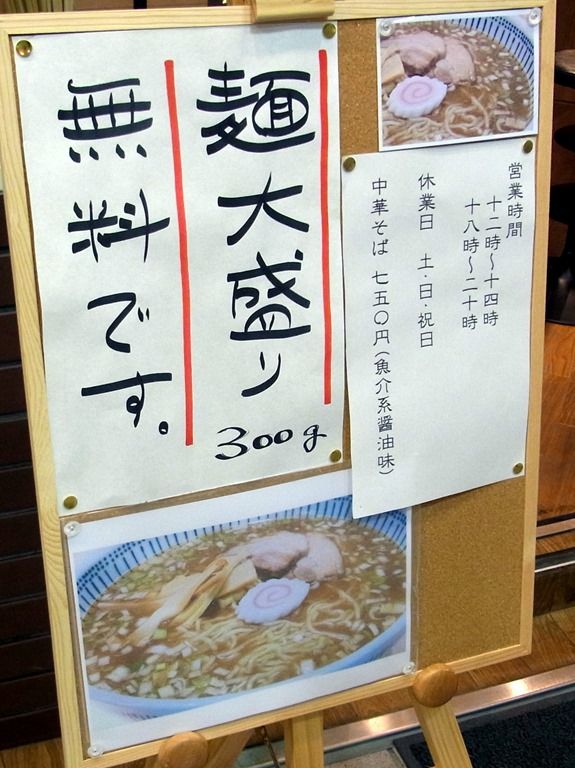 麺大盛り300g
無料です。
営業時間
十二時～十四時
十八時～二十時
休業日 土・日・祝日
中華そば 七五〇円（魚介系醤油味）